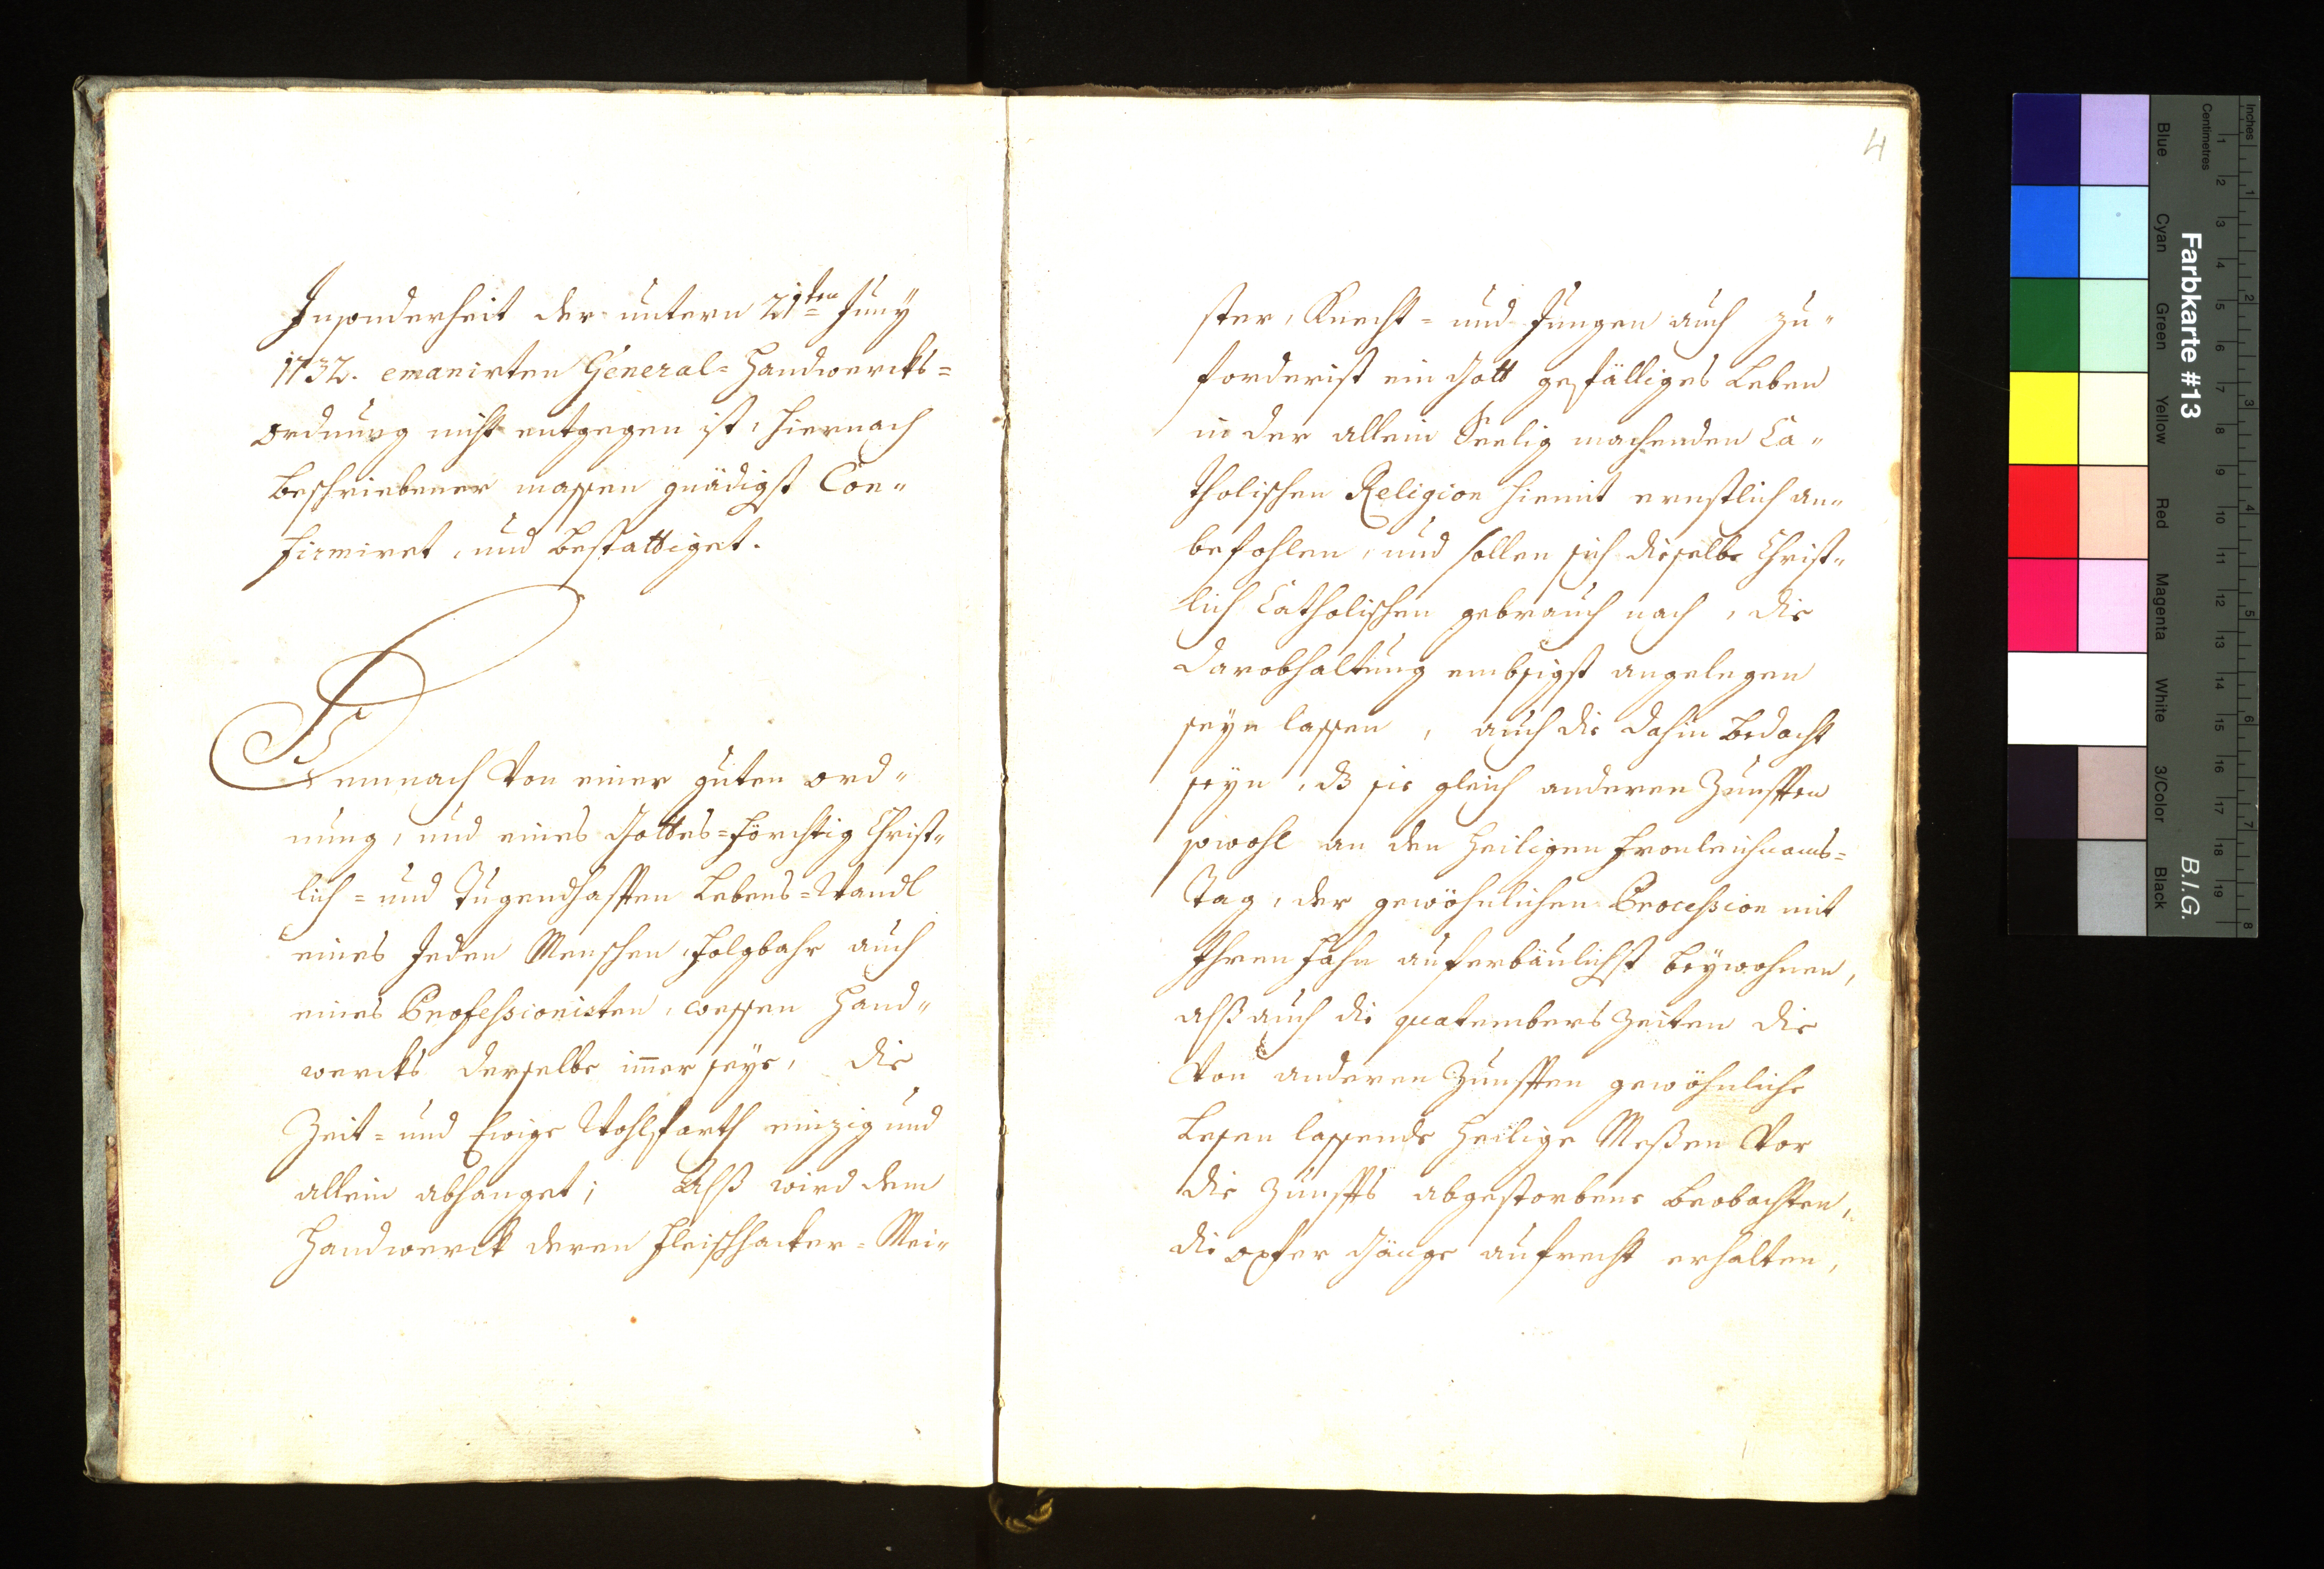 Insonderheit der untern 21ten Juny
1732. emanirten General=Handwercks=
ordnung nicht entgegen ist, hiernach
beschriebener massen gnädigst Con„
firmiret, und bestattiget.
Demnach von einer guten ord„
nung, und eines Gottes=förchtig Christ„
lich= und Tugendhafften Lebens=Wandl
eines Jeden Menschen, folgbahr auch
eines Professionisten, wessen Hand„
wercks derselbe im̄er seye, die
Zeit= und Ewige Wohlfarth einzig und
allein abhanget; Alß wird dem
Handwerck deren Fleischhacker=Mei„
4
ster, Knecht= und Jungen auch zu„
forderist ein Gott gefälliges Leben
in der allein Seelig machenden Ca„
tholischen Religion hiemit ernstlich an„
befohlen, und sollen sich dieselbe Christ„
lich Catholischen gebrauch nach, die
darobhaltung embsigst angelegen
seyn lassen, auch die dahin bedacht
seyn, dß sie gleich anderen Zunfften
sowohl an den Heiligen Fronleichnams=
Tag, der gewöhnlichen Procession mit
Ihren Fahn auferbäulichst beywohnen,
alß auch die quatembers Zeiten die
von anderen Zunfften gewöhnliche
Lesen lassende Heilige Meßen vor
die Zunffts abgestorbene beobachten,
die opfer Gänge aufrecht erhalten,
Inches
Centimetres
1 2 3 4 5 6 7 8 9 10 11 12 13 14 15 16 17 18 19
1 2 3 4 5 6 7 8
Farbkarte #13
B.I.G.
Blue
Cyan
Green
Yellow
Red
Magenta
White
3/Color
Black